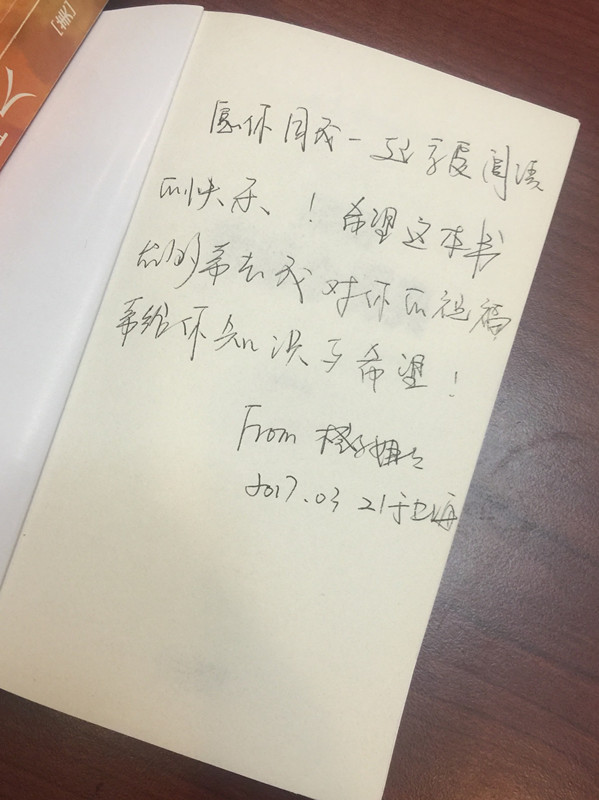 愿你同我一起享受阅读
的快乐、！希望这本书
能够带去我对你的祝福
带给你知识与希望！
From
2017.03 21于上海